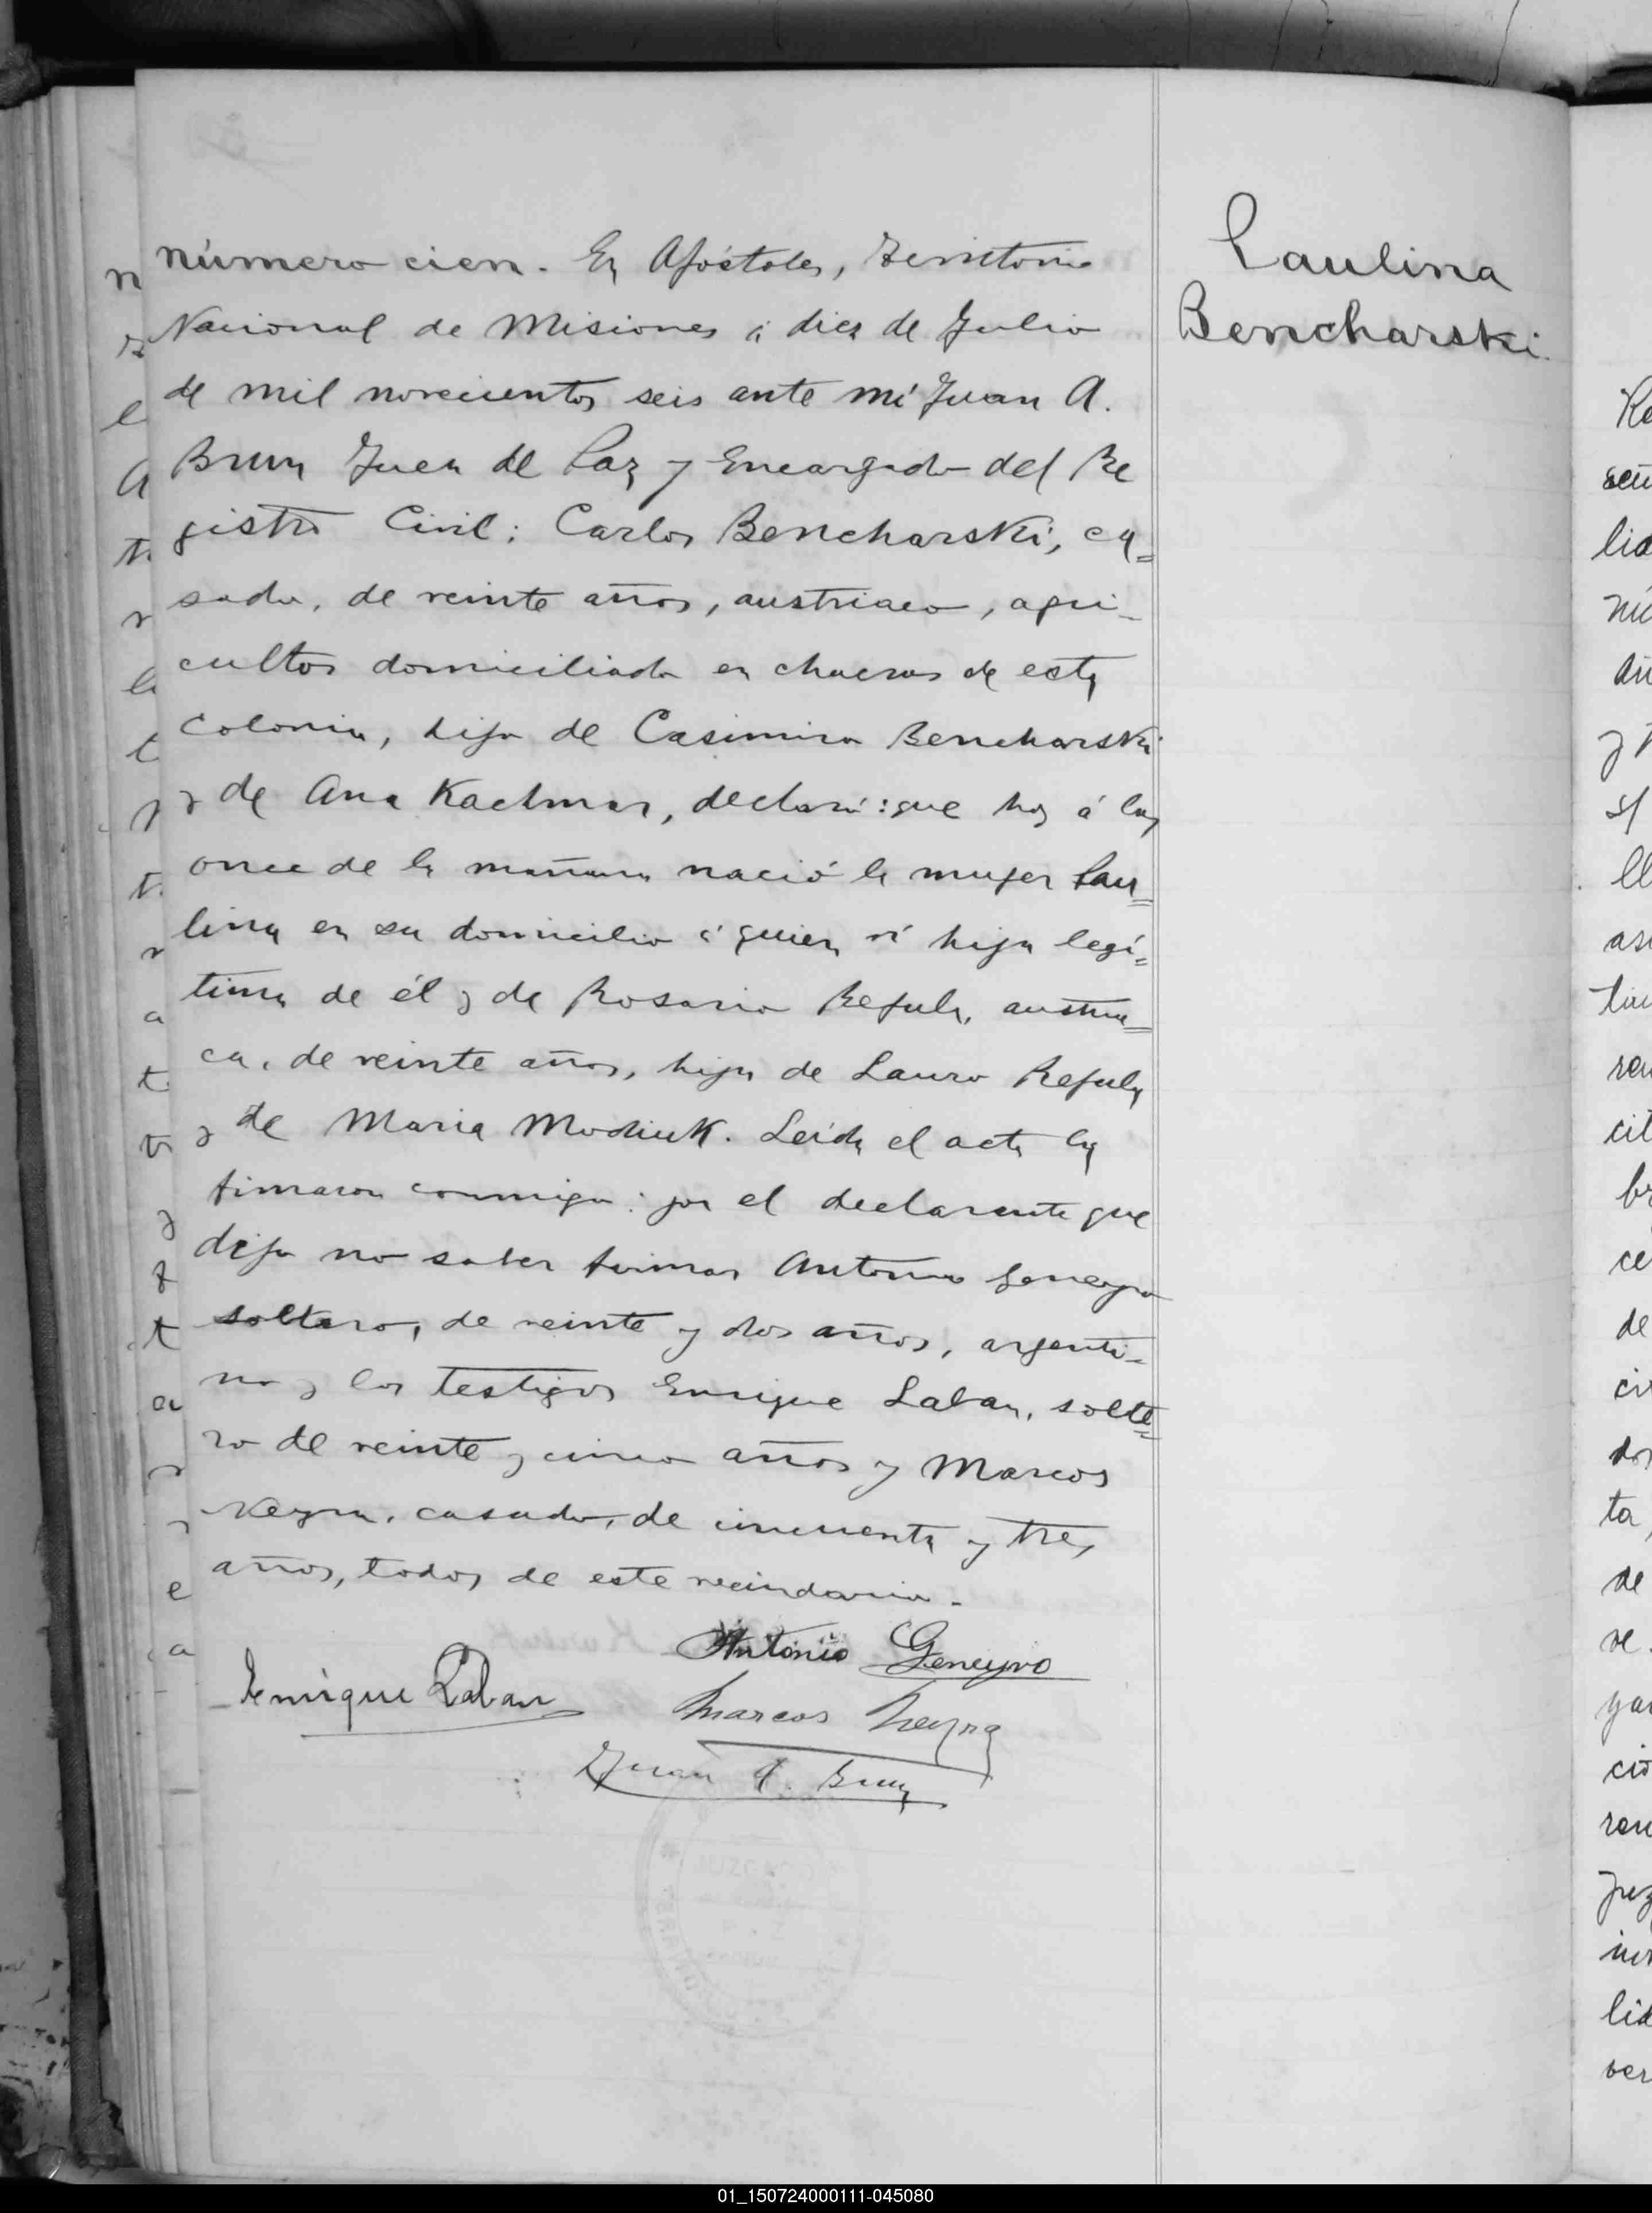 Número cien. En Apóstoles, Territorio
Nacional de Misiones á diez de Julio
de mil novecientos seis ante mí Juan A.
Brun Juez de Paz y Encargado del Re
gistro Civil: Carlos Bencharski, ca=
sado, de veinte años, austriaco, agri-
cultor domiciliado en chacras de esta
Colonia, hijo de Casimiro Bencharski
y de Ana Kachmar, declaró: que hoy á las
once de la mañana nació la mujer Pau=
lina en su domicilio á quien ví hija legí=
tima de él y de Rosario Refula, austria=
ca, de veinte años, hija de Lauro Refula
y de Maria Mochiuk. Leída el acta la
firmaron conmigo: por el declarante que
dijo no saber firmar Antonio Geneyro
soltero, de veinte y dos años, argenti-
no y los testigos Enrique Laban, solte=
ro de veinte y cinco años y Marcos
Neyra, casado, de cincuenta y tres
años, todos de este vecindario.
Antonio Geneyro
Enrique Laban
Marcos Neyra
Juan A. Brun
Paulina
Bencharski
01_150724000111-045080